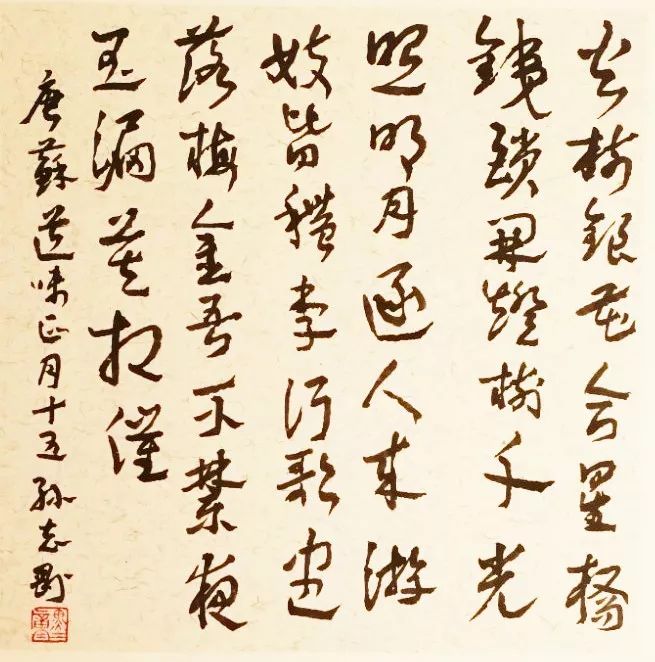 火樹銀花合星橋
鐵鎖開燈樹千光
照明月逐人來游
妓皆穠李行歌盡
落梅金吾不禁夜
玉漏莫相催
唐蘇道味正月十五孫志剛